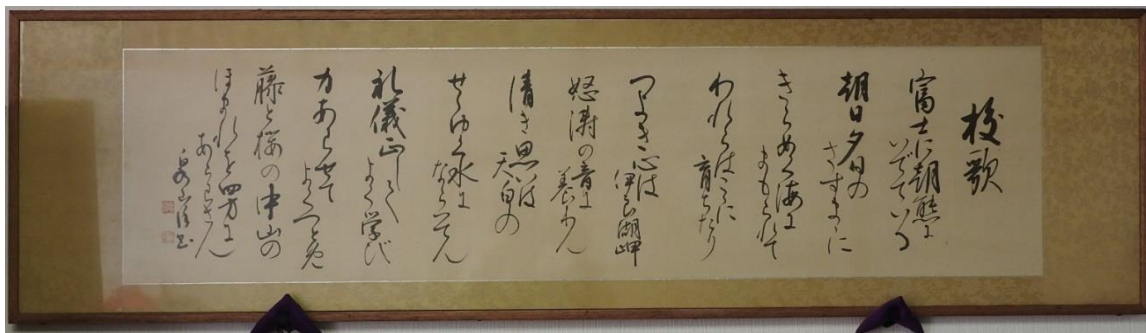 校歌
富士に朝熊に
いでている
朝日夕日の
さすまゝに
きらめく海に
まもられて
われらはこゝに
育ちたり
つよき心は
伊良湖岬
怒濤の音に
養わん
清き思いは
天白の
水に
礼儀正しく
よく学び
力あわせて
よくつとめ
藤と桜の中山の
ほまれを四方に
あらわさん